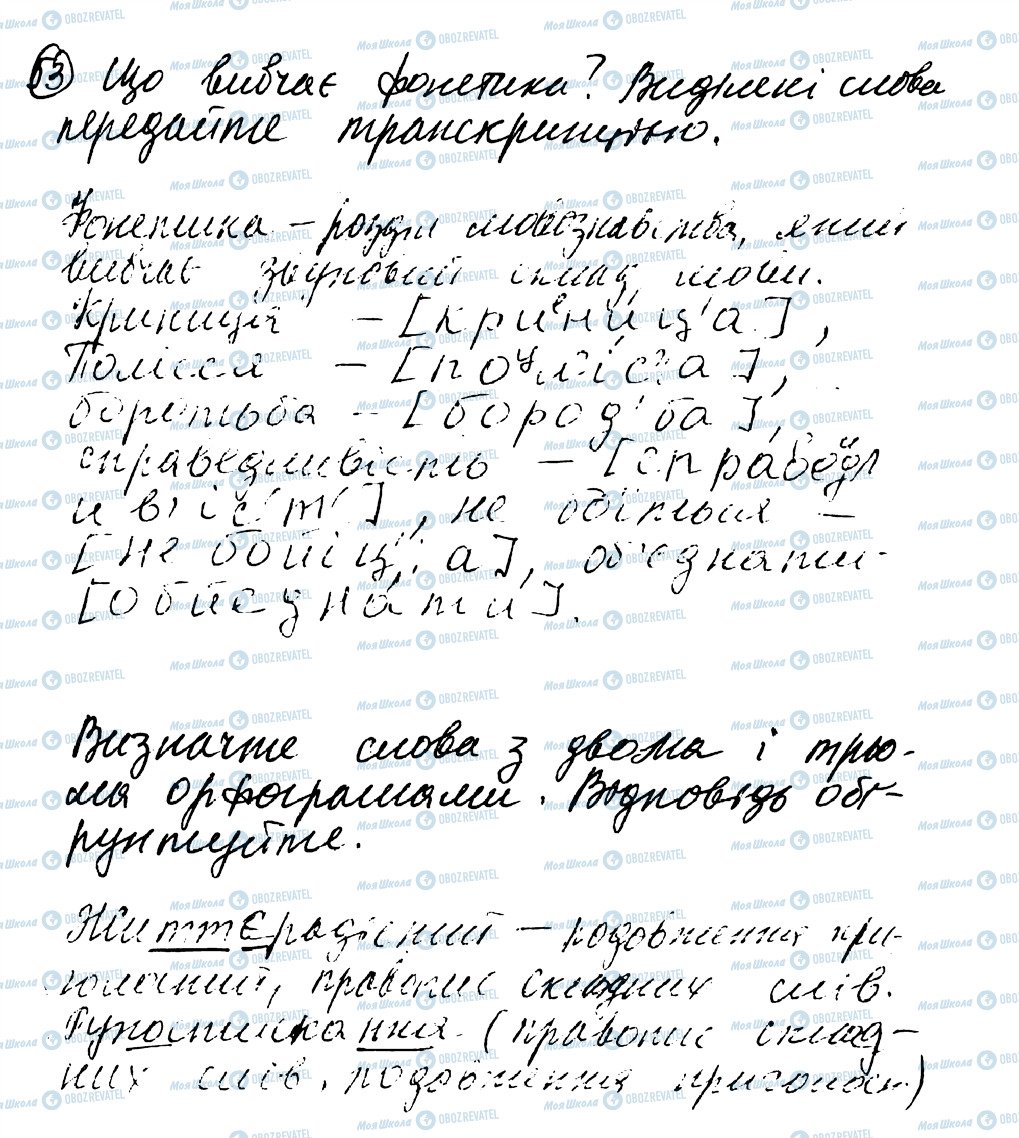 53 Що вивчає фонетика? Виділені слова
передайте транскрипцією.
Фонетика – розділ мовознавства, який
вивчає звуковий склад мови.
Криниця – [криᵉни́ц'а],
Полісся – [поᵘл'іс':а],
боротьба – [бород'ба],
справедливість –
ив'іс'т'], не обійтися –
[не обійіц':а], об'єднати
[обйеднати].
Визначте слова з двома і трьо-
ма орфограмами. Відповідь обґ-
рунтуйте.
Життєрадісний – подовження при-
голосний, правопис складних слів.
(правопис склад-
них слів, подовження приголосн.)